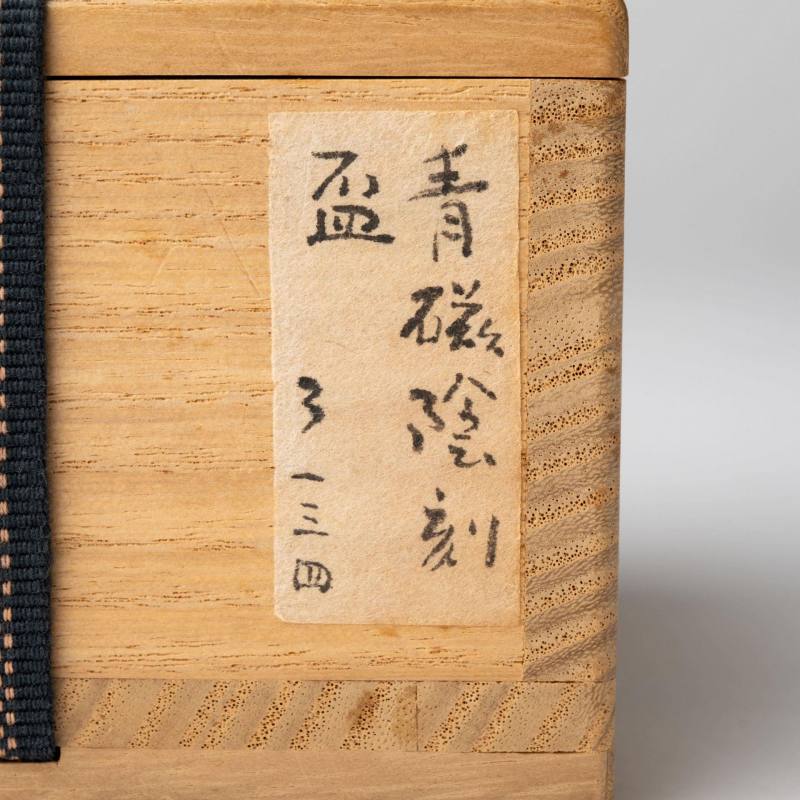 青磁陰刻
盃
了一三四